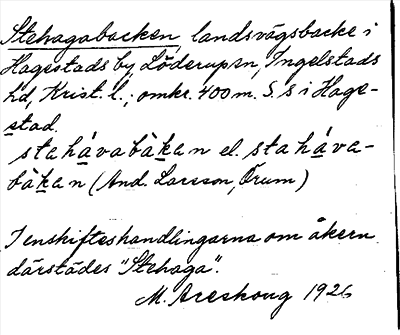 Stehagabacken, landsvägsbacke i
Hagestads by, Löderups sn, Ingelstads
hd, Krist. l.; omkr. 400 m. S. s i Hage-
stad.
stahávabàkan el. staháva-
bàkan (And. Larsson, Örum)
I enskifteshandlingarna om åkern
därstädes "Stehaga".
M. Areskoug 1926